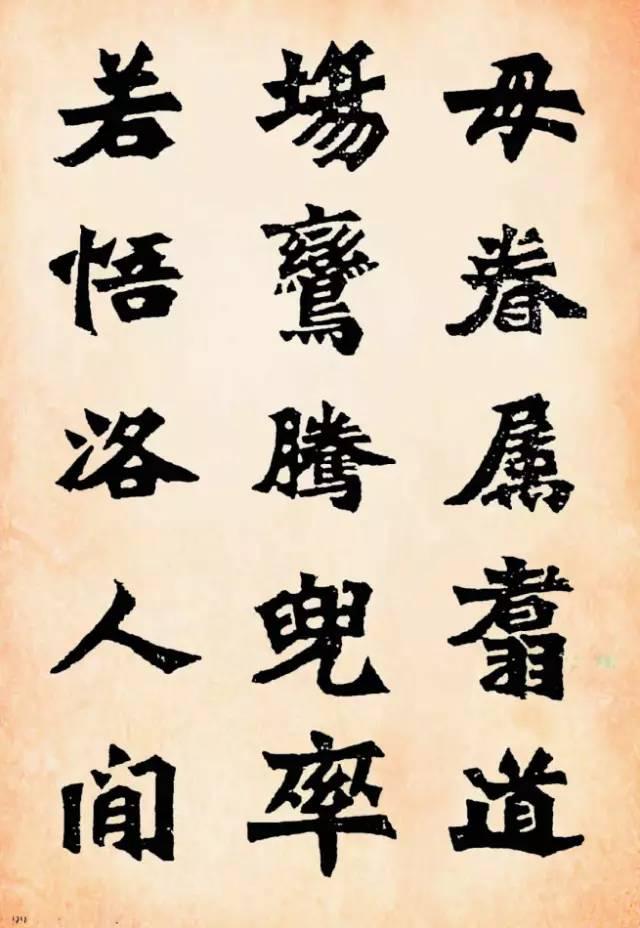 母眷属翥道
場鸞騰兜率
若悟洛人間